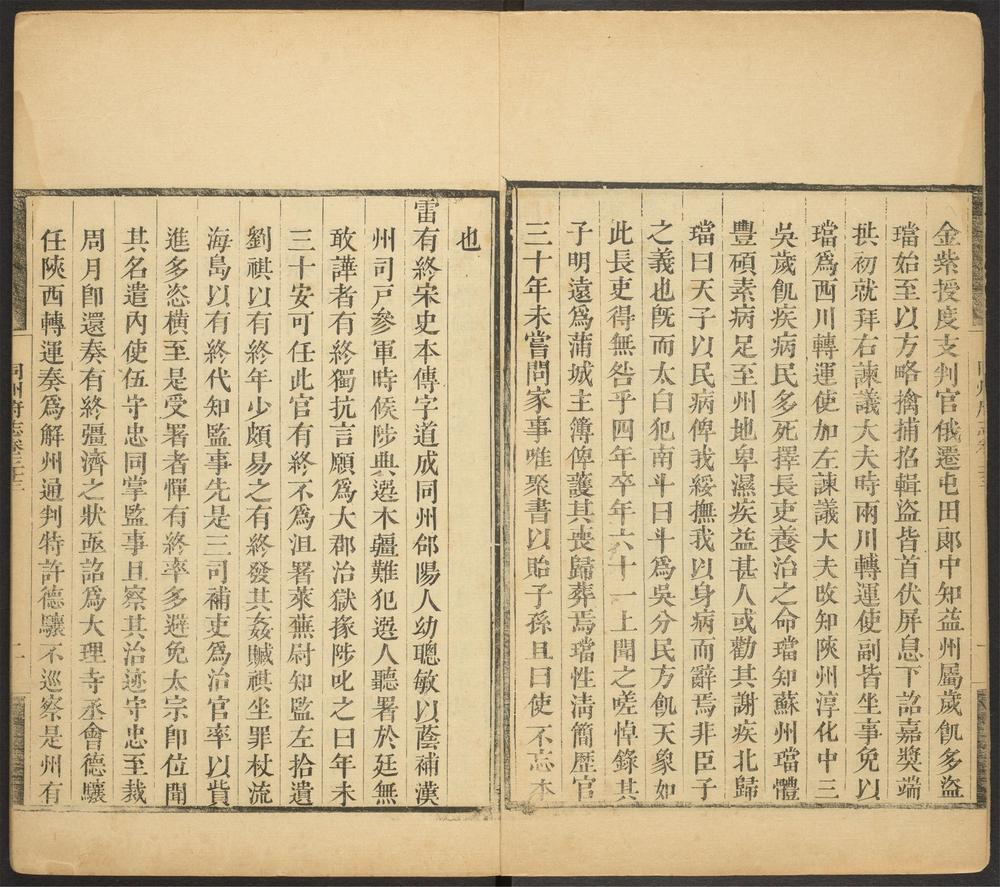 金紫授度支判官俄遷屯田郎中知益州屬歲飢多盜
璫始至以方略擒捕招輯盜皆首伏屏息下詔嘉獎端
拱初就拜右諫議大夫時兩川轉運使副皆坐事免以
璫爲西川轉運使加左諫議大夫改知陝州淳化中三
吳歲飢疾病民多死擇長吏養治之命璫知蘇州璫體
豐碩素病足至州地卑濕疾益甚人或勸其謝疾北歸
璫曰天子以民病俾我綏撫我以身病而辭焉非臣子
之義也旣而太白犯南斗曰斗爲吳分民方飢天象如
此長吏得無咎乎四年卒年六十一上聞之嗟悼錄其
子明遠爲蒲城主簿俾護其喪歸葬焉璫性清簡歷官
三十年未嘗問家事唯聚書以貽子孫且曰使不忘本
也
雷有終宋史本傳字道成同州郃陽人幼聰敏以蔭補漢
州司戸參軍時侯陟典選木彊難犯選人聽署於廷無
敢譁者有終獨抗言願爲大郡治獄掾陟叱之曰年未
三十安可任此官有終不爲沮署萊蕪尉知監左拾遺
劉祺以有終年少頗易之有終發其姦贓祺坐罪杖流
海島以有終代知監事先是三司補吏爲冶官率以貲
進多恣橫至是受署者憚有終率多避免太宗卽位聞
其名遣內使伍守忠同掌監事且察其治迹守忠至裁
周月卽還奏有終彊濟之狀亟詔爲大理寺丞會德驤
任陝西轉運奏爲解州通判特許德驤不巡察是州有
同州府志卷三十三